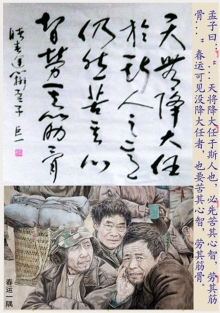 孟子曰："天将降大任于斯人也，必先苦其心智，劳其筋
骨…"春运可见没降大任者，也要苦其心智，劳其筋骨。
天将降大任
於斯人
仍然苦其心
智劳其筋骨
春运一隅